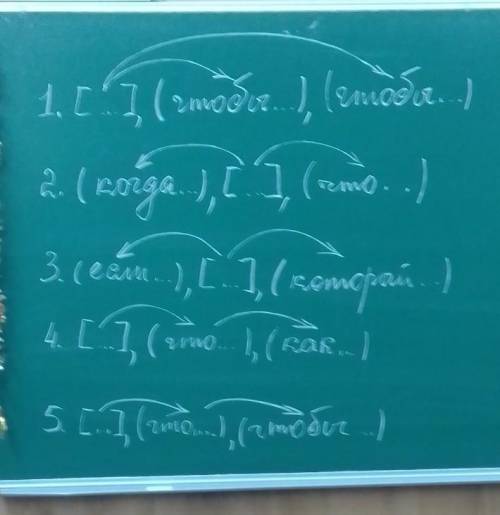 1. [...], (чтобы...), (чтобы...)
2. (когда...), [...], (что...)
3. (если...), [...], (который...)
4. [...], (что...), (как...)
5. [...], (что...), (чтобы...)